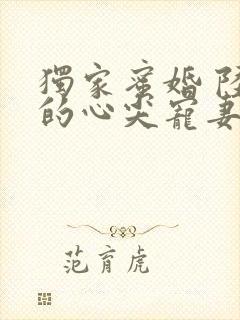 獨家蜜婚
的心尖寵妻
范育虎